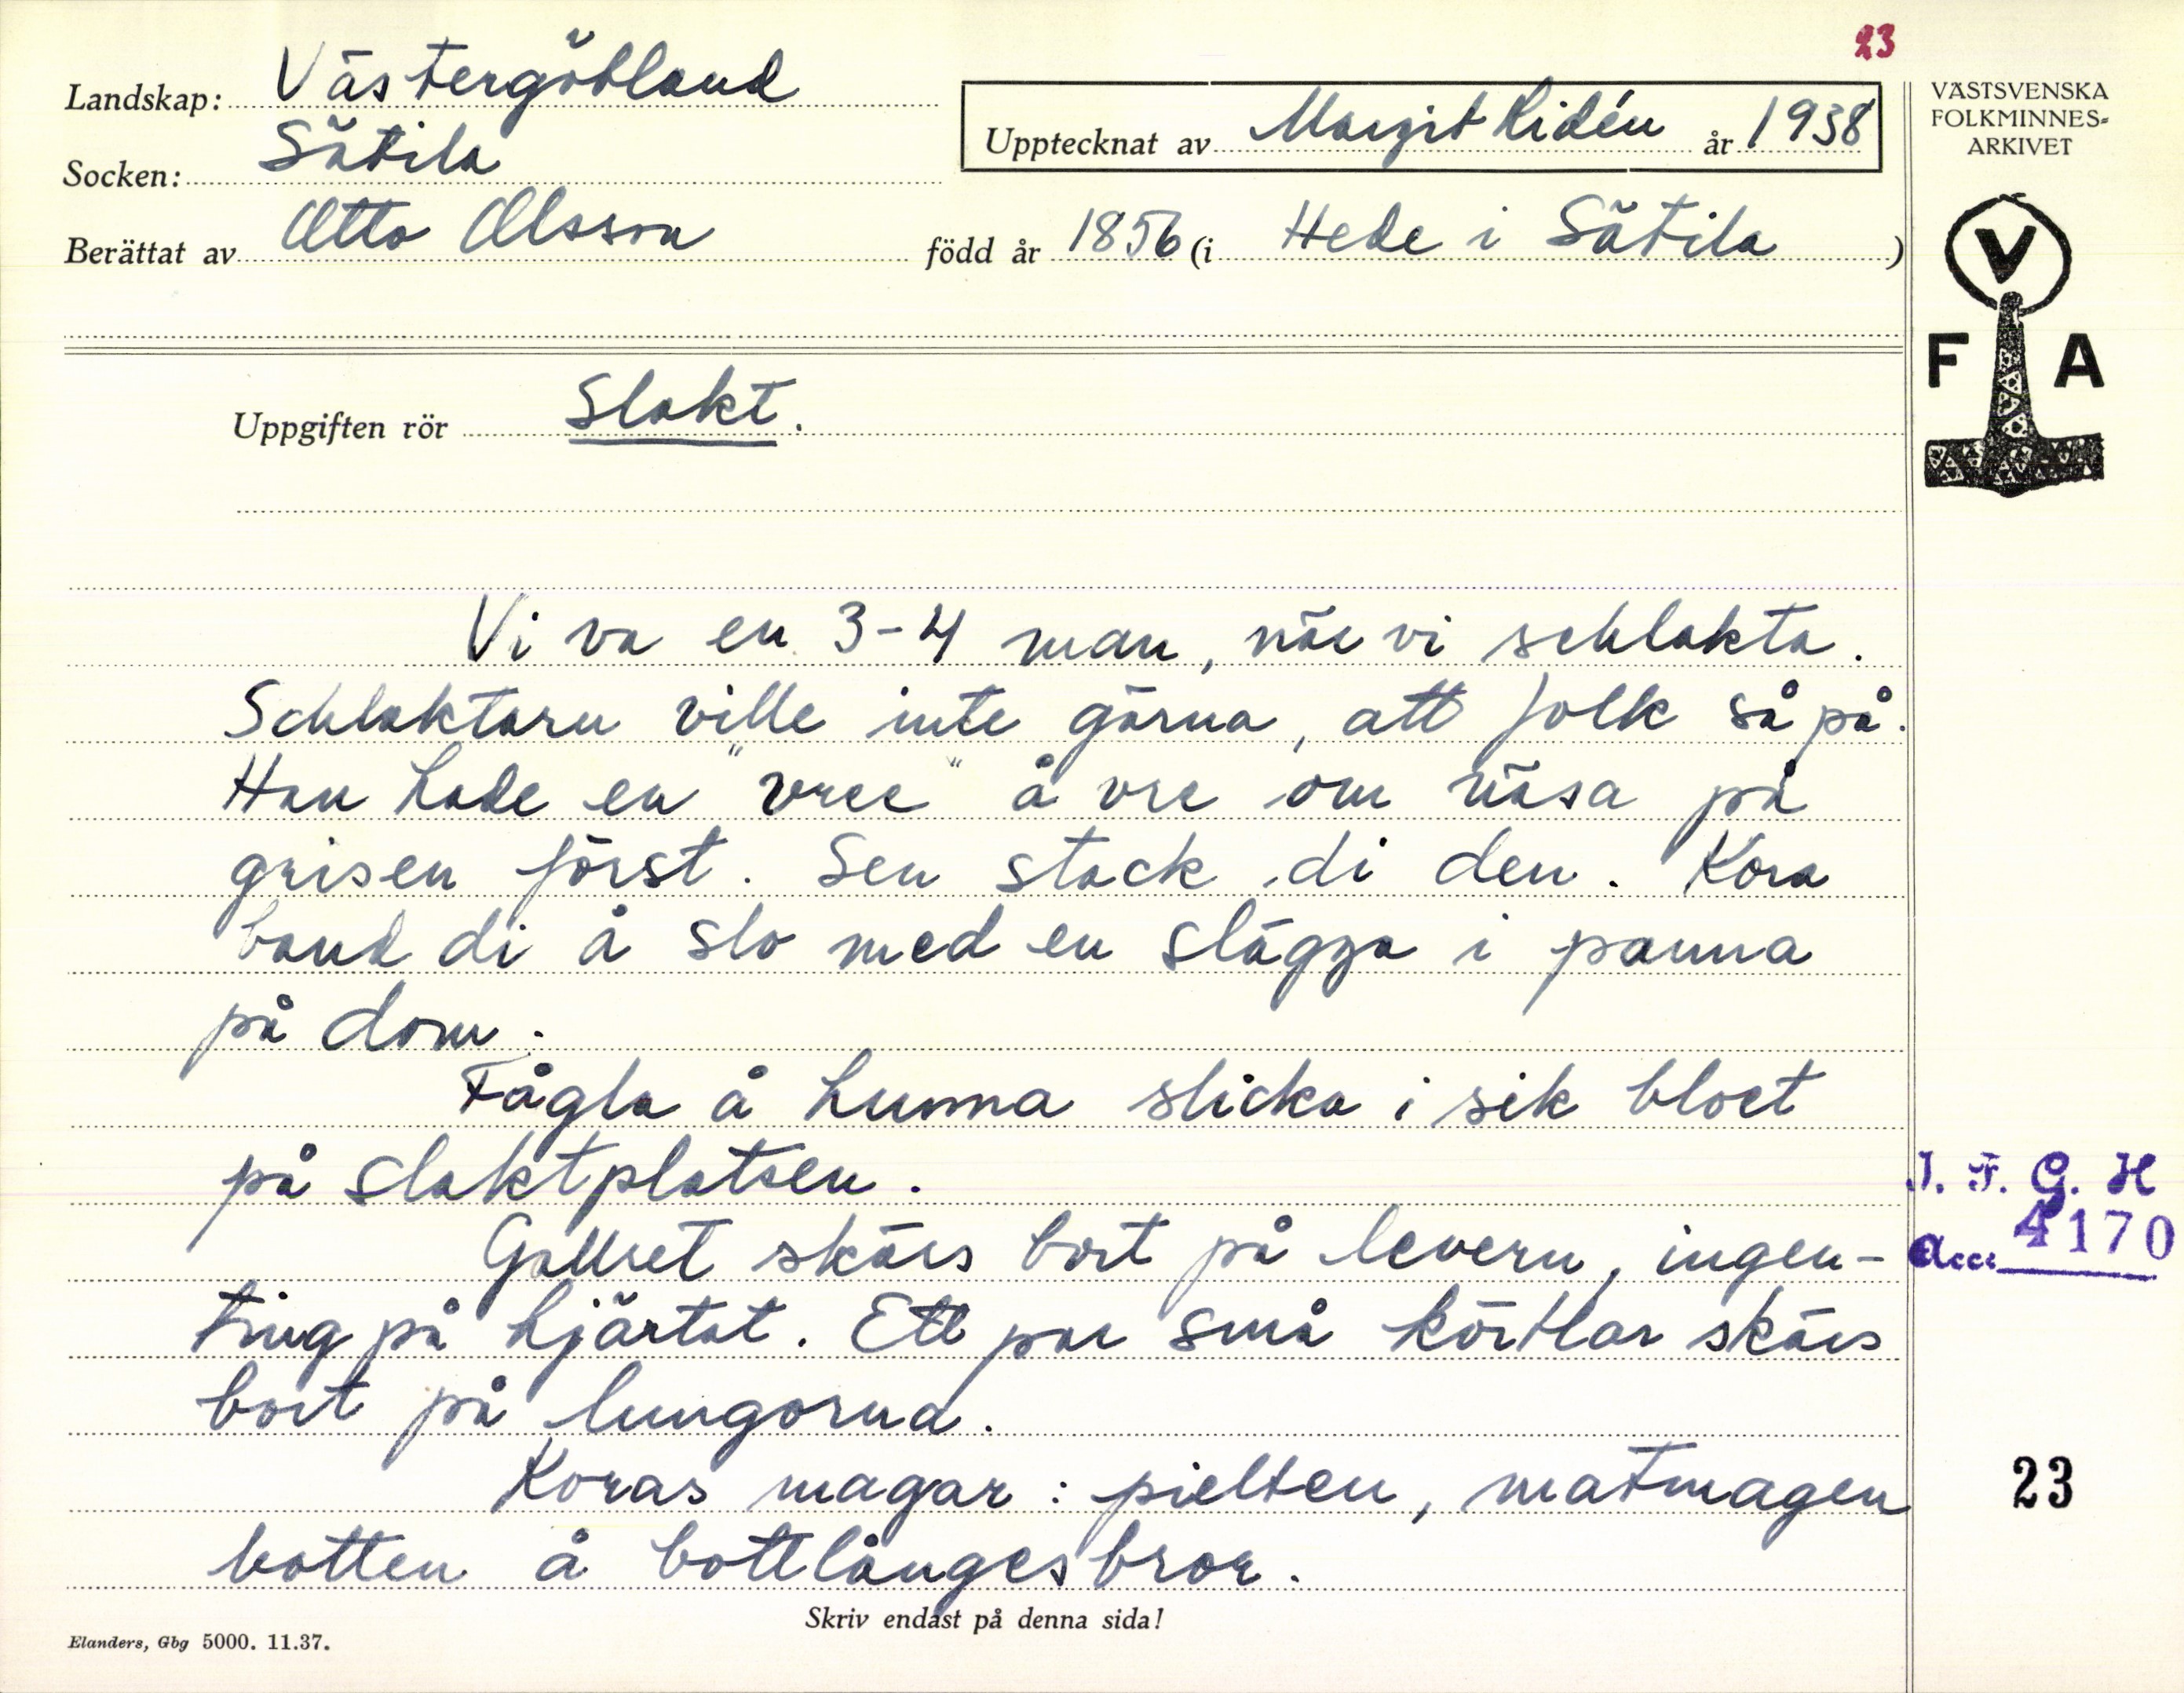 23
Landskap: Västergötland
Socken: Sätila
Upptecknat av Margit Lidén år 1938
Berättat av Otto Olsson född år 1856 (i Hede i Sätila )
VÄSTSVENSKA
FOLKMINNES-
ARKIVET
V
F A
Uppgiften rör Slakt.
Vi va en 3-4 man, när vi schlakta.
Schlaktarn ville inte gärna, att folk så på.
Han hade en "vree" å vre om näsa på
grisen först. Sen stack di den. Kora
band di å slo med en slägga i panna
på dom.
Fågla å hunna slicka i sik bloet
på slaktplatsen.
Gallret skärs bort på levern, ingen-
ting på hjärtat. Ett par små körtlar skärs
bort på lungorna.
Koras magar: pielten, matmagen
botten å bottlångesbror.
I. F. G. H
Acc: 4170
23
Skriv endast på denna sida!
Elanders, Gbg 5000. 11.37.